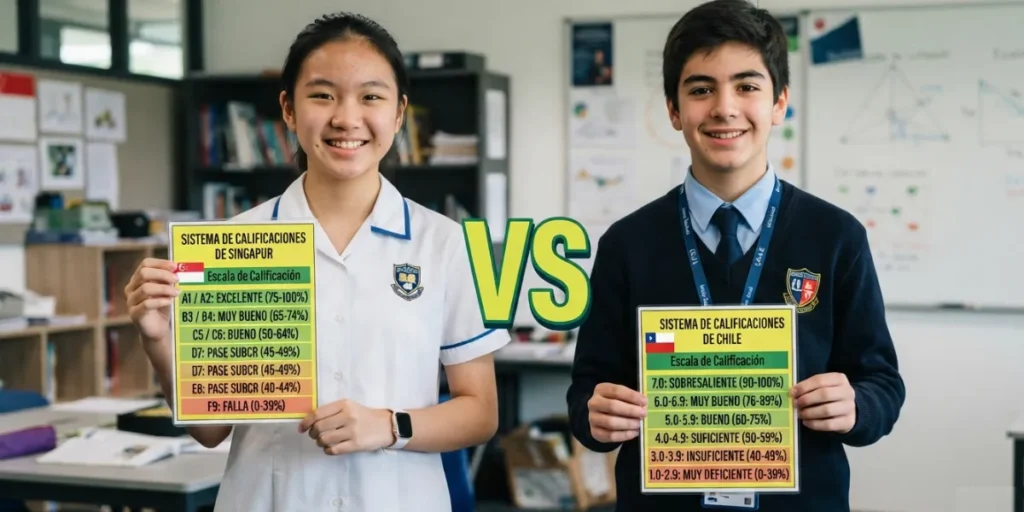 SISTEMA DE CALIFICACIONES
DE SINGAPUR
Escala de Calificación
A1 / A2: EXCELENTE (75-100%)
B3 / B4: MUY BUENO (65-74%)
C5 / C6: BUENO (50-64%)
D7: PASE SUBCR (45-49%)
D7: PASE SUBCR (45-49%)
E8: PASE SUBCR (40-44%)
F9: FALLA (0-39%)
VS
SISTEMA DE CALIFICACIONES
DE CHILE
Escala de Calificación
7.0: SOBRESALIENTE (90-100%)
6.0-6.9: MUY BUENO (76-89%)
5.0-5.9: BUENO (60-75%)
4.0-4.9: SUFICIENTE (90-59%)
3.0-3.9: INSUFICIENTE (40-49%)
1.0-2.9: MUY DEFICIENTE (0-39%)